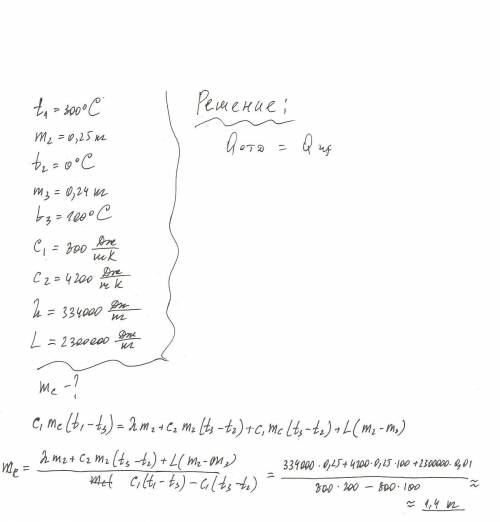 t₁ = 300°C
m₂ = 0,25 кг
t₂ = 0°C
m₃ = 0,24 кг
t₃ = 100°C
c₁ = 800 Дж/кг К
c₂ = 4200 Дж/кг К
λ = 334000 Дж/кг
L = 2300000 Дж/кг
m_c - ?
Решение:
Q отд = Q пр
c₁ m_c (t₁ - t₃) = λ m₂ + c₂ m₂ (t₃ - t₂) + c₁ m_c (t₃ - t₂) + L (m₂ - m₃)
m_c = (λ m₂ + c₂ m₂ (t₃ - t₂) + L (m₂ - m₃)) / (c₁ (t₁ - t₃) - c₁ (t₃ - t₂)) = (334000 · 0,25 + 4200 · 0,25 · 100 + 2300000 · 0,01) / (800 · 200 - 800 · 100) ≈
≈ 1,4 кг